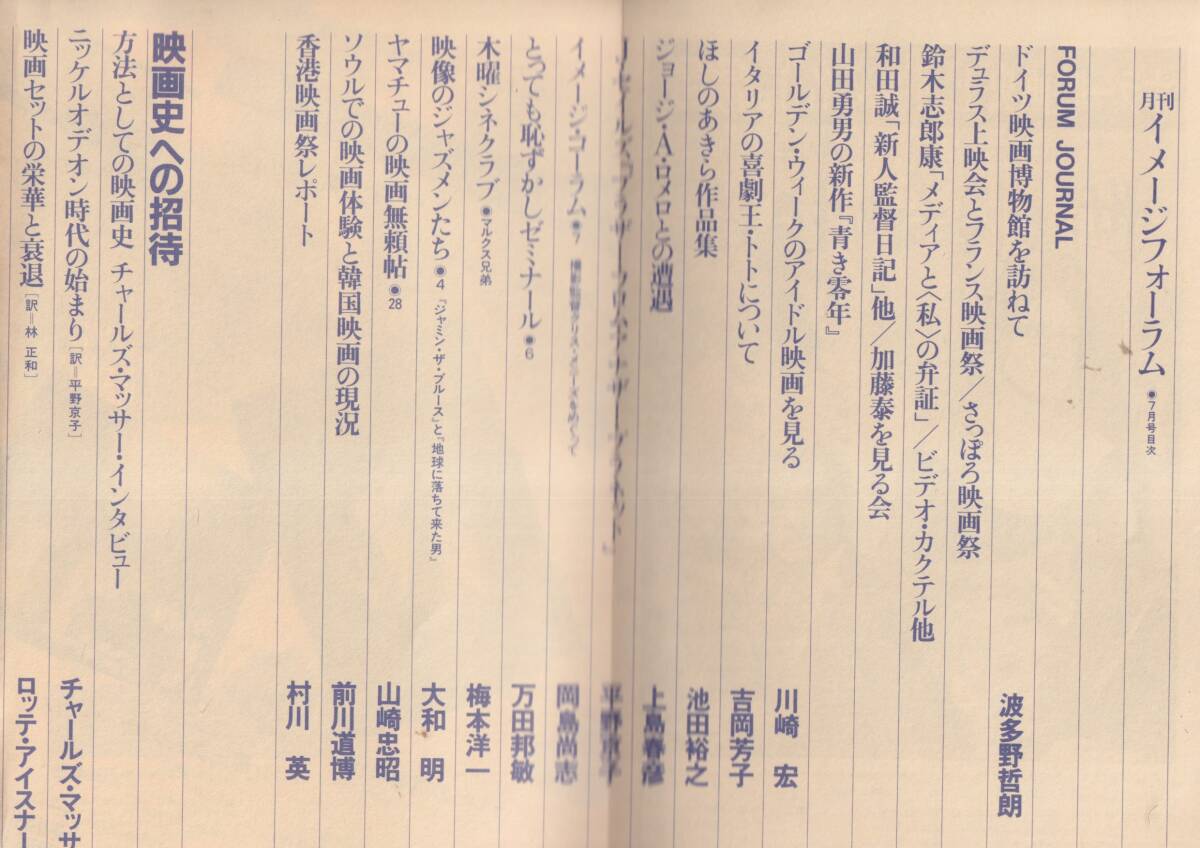 月刊イメージフォーラム ●7月号目次
FORUM JOURNAL
ドイツ映画博物館を訪ねて 波多野哲朗
デュラス上映会とフランス映画祭/さっぽろ映画祭
鈴木志郎康「メディアと〈私〉の弁証」/ビデオ・カクテル他
和田誠「新人監督日記」他/加藤泰を見る会
山田勇男の新作『青き零年』
ゴールデン・ウィークのアイドル映画を見る 川崎 宏
イタリアの喜劇王・トトについて 吉岡芳子
ほしのあきら作品集 池田裕之
ジョージ・A・ロメロとの遭遇 上島春彦
『ブラザー・フロム・アナザー・プラネット』 平野京子
イメージ・コーラム●7 をめぐって 岡島尚志
とっても恥ずかしゼミナール●6 万田邦敏
木曜シネクラブ●マルクス兄弟 梅本洋一
映像のジャズメンたち●4 『ジャミン・ザ・ブルース』と『地球に落ちて来た男』 大和 明
ヤマチューの映画無頼帖●28 山崎忠昭
ソウルでの映画体験と韓国映画の現況 前川道博
香港映画祭レポート 村川 英
映画史への招待
方法としての映画史 チャールズ・マッサー・インタビュー
ニッケルオデオン時代の始まり[訳=平野京子] チャールズ・マッサ
映画セットの栄華と衰退[訳=林 正和] ロッテ・アイスナー